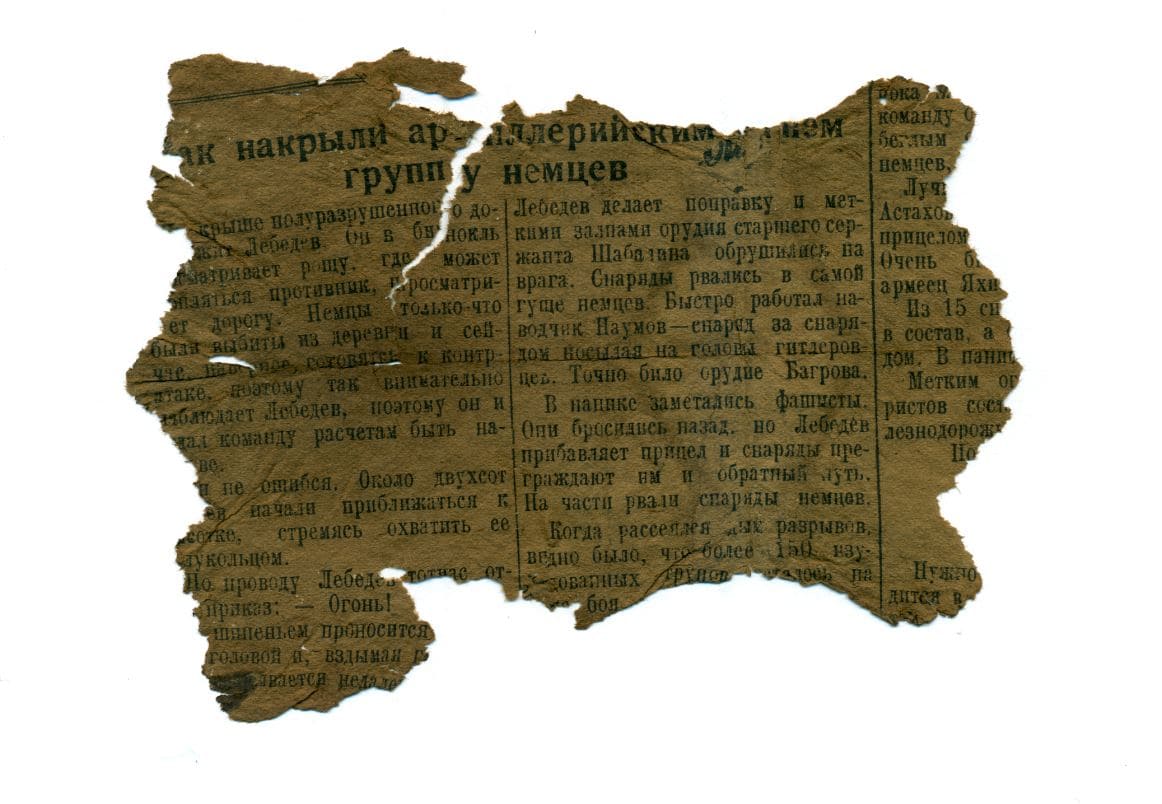 ак накрыли ар иллерийским нем
групп у немцев
крыше полуразрушенного до-
жит Лебедев Он в бинокль
сматривает рощу, где может
пляться противник, просматри-
ет дорогу. Немцы только-что
были выбиты из деревни и сей-
час, наверное, готовятся к контр-
атаке, поэтому так внимательно
наблюдает Лебедев, поэтому он и
дал команду расчетам быть на-
ве.
н не ошибся. Около двухсот
ев начали приближаться к
сотке, стремясь охватить ее
лукольцом.
По проводу Лебедев тотчас от-
приказ: — Огонь!
шипеньем проносится
головой и, вздымая
рывается недале
Лебедев делает поправку и мет-
кими залпами орудия старшего сер-
жанта Шабалина обрушились на
врага. Снаряды рвались в самой
гуще немцев. Быстро работал на-
водчик Наумов—снаряд за снаря-
дом посылая на головы гитлеров-
цев. Точно било орудие Багрова.
В панике заметались фашисты.
Они бросились назад, но Лебедев
прибавляет прицел и снаряды пре-
граждают им и обратный путь.
На части рвали снаряды немцев.
Когда рассеялся дым разрывов,
видно было, что более 150 изу-
дованных трупов сталось на
боя
пока
команду
беглым
немцев,
Луч
Астахов
прицелом
Очень б
армеец Яхи
Из 15 сн
в состав, а
дом. В пани
Метким ог
ристов сост
лезнодорож
По
Нужно
дится в